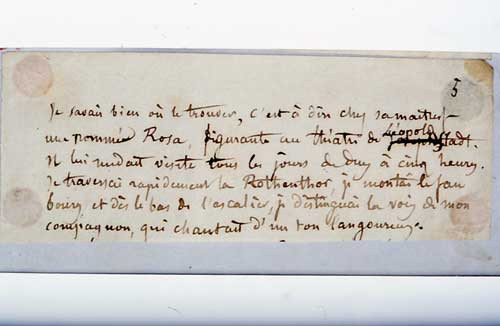 5
Je savais bien où le trouver, c'est à dire chez sa maîtresse
une nommée Rosa, figurante au théâtre de Léopoldstadt.
Il lui rendait visite tous les jours de deux à cinq heures.
Je traversai rapidement la Rothenthor, je montai le fau
bourg et dès le bas de l'escalier, je distinguai la voix de mon
compagnon, qui chantait d'un ton langoureux.